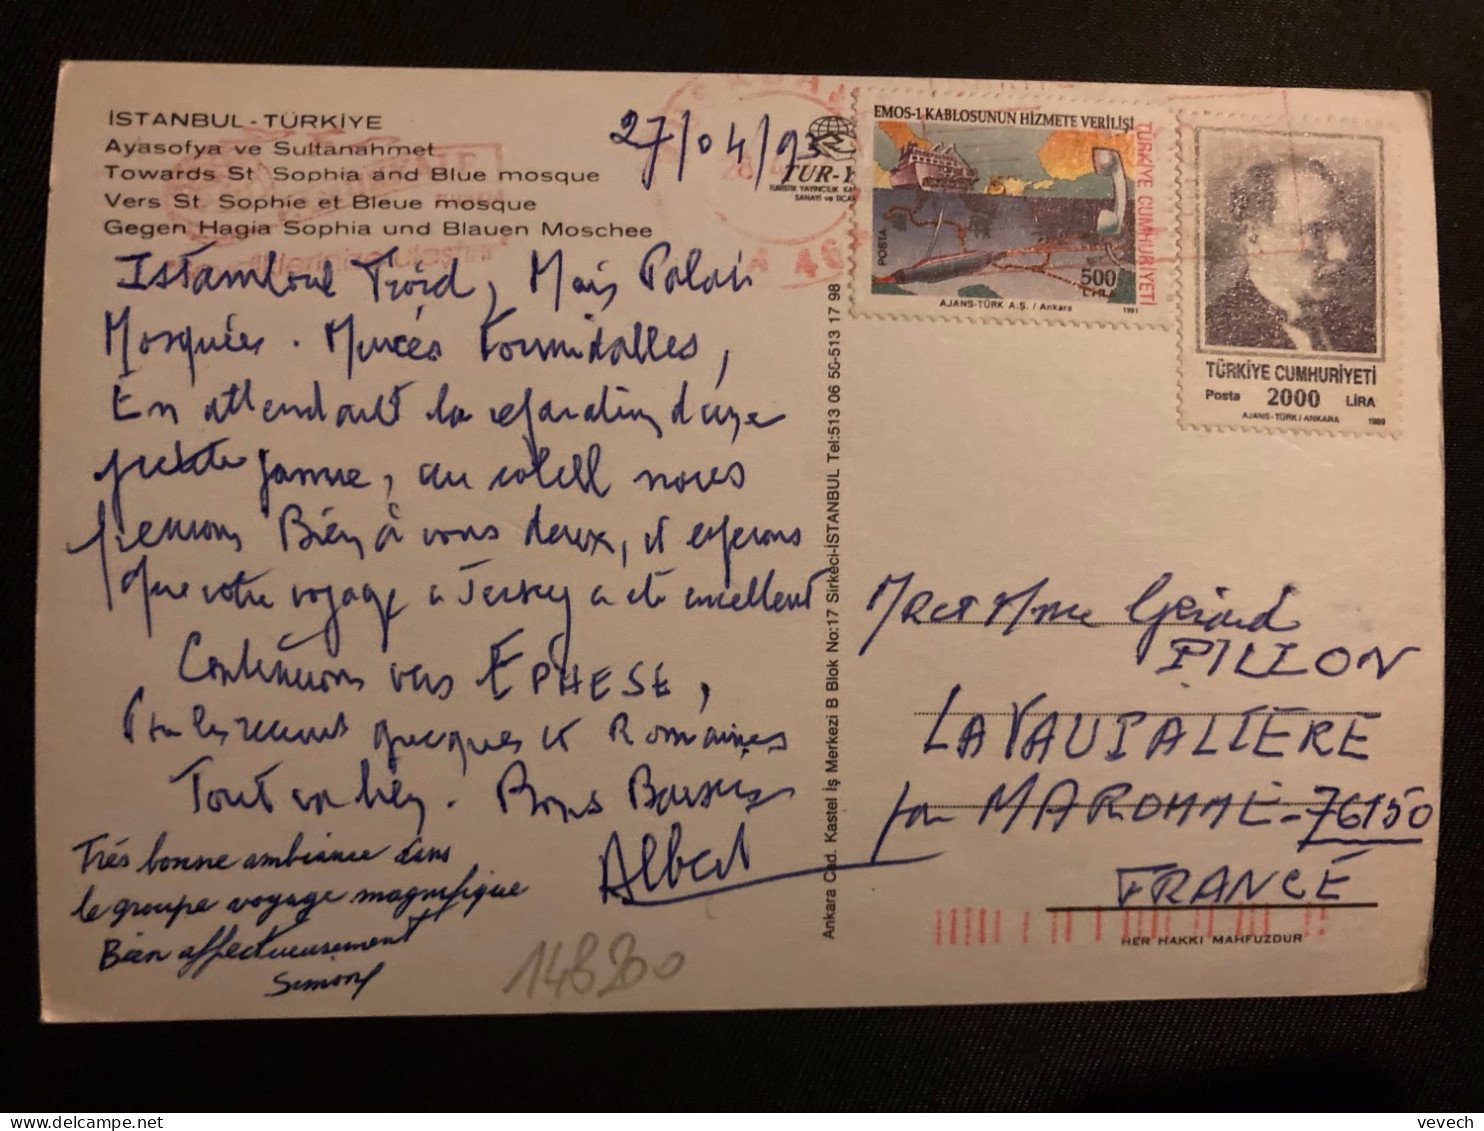 İSTANBUL - TÜRKİYE
Ayasofya ve Sultanahmet
Towards St. Sophia and Blue mosque
Vers St. Sophie et Bleue mosque
Gegen Hagia Sophia und Blauen Moschee
27/04/93
TUR-Y
Istamboul Froid, Mais Palais
Mosquées. Musées Formidables,
En attendant la
petite, au soleil nous
pensons Bien à vous deux, et esperons
que votre voyage a Jersey a été excellent
Continuons vers EPHESE,
Romaines
Tout va bien. Bons Baisers
Albert
Très bonne ambiance dans
le groupe voyage magnifique
Bien affectueusement
Simone
148200
Ankara Cad. Kastel İş Merkezi B Blok No:17 Sirkeci-İSTANBUL Tel:513 06 56-513 17 98
EMOS-1 KABLOSUNUN HİZMETE VERİLİŞİ
TÜRKİYE CUMHURİYETİ
POSTA
500
LİRA
AJANS-TÜRK A.Ş. / Ankara
1991
TÜRKİYE CUMHURİYETİ
Posta 2000 LİRA
AJANS-TÜRK / ANKARA 1989
Mr et Mme Gérard
PILLON
LA VAUPALIERE
par MAROMME - 76150
FRANCE
HER HAKKI MAHFUZDUR
vevech